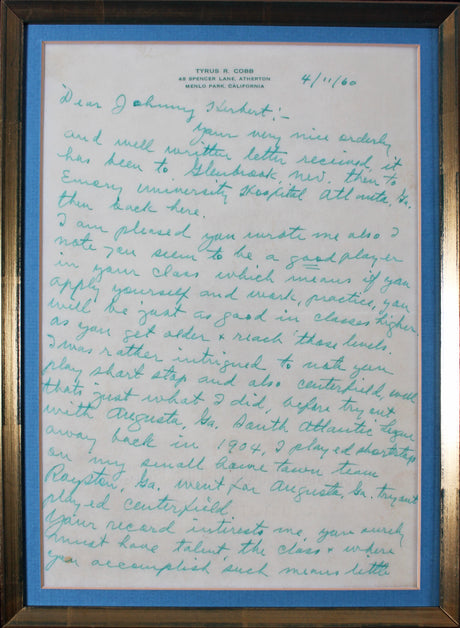 TYRUS R. COBB
48 SPENCER LANE, ATHERTON
MENLO PARK, CALIFORNIA
4/11/60
Dear Johnny Herbert:-
Your very nice orderly
and well written letter received, it
has been to Glenbrook, Nev. then to
Emory University Hospital Atlanta, Ga.
then back here.
I am pleased you wrote me also I
note you seem to be a good player
in your class which means if you
apply yourself and work, practice, you
will be just as good in classes higher
as you get older & reach those levels.
I was rather intrigued to note you
play short stop and also centerfield, well
thats just what I did, before try out
with Augusta, Ga. South Atlantic league
away back in 1904, I played shortstop
on my small home town team
Royston, Ga. went for Augusta, Ga. try out
played centerfield.
Your record interests me, you surely
must have talent, the class & where
you accomplish such means little